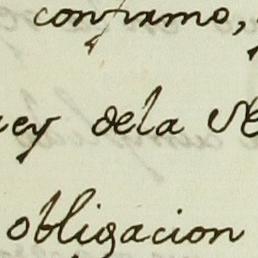 confirmo,
ey dela
obligacion